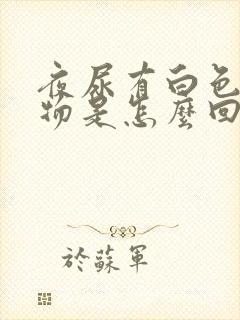 夜尿有白色
物是怎麼回
於蘇軍